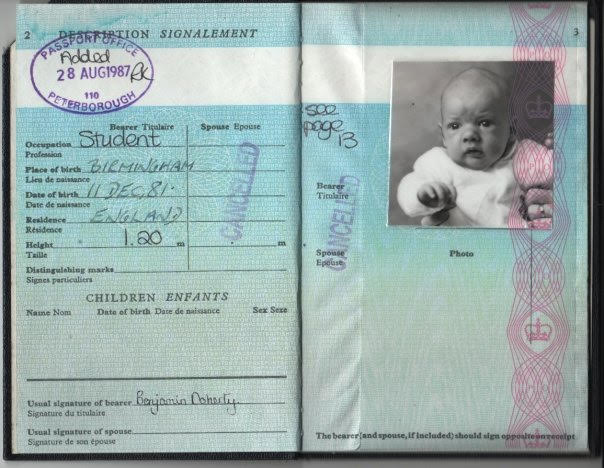 2 DESCRIPTION SIGNALEMENT
PASSPORT OFFICE
Added
28 AUG 1987 RK
110
PETERBOROUGH
Bearer Titulaire Spouse Epouse
Occupation Student
Profession
Place of birth BIRMINGHAM
Lieu de naissance
Date of birth 11 DEC, 81.
Date de naissance
Residence ENGLAND
Résidence
Height 1.20 m m
Taille
Distinguishing marks
Signes particuliers
CANCELLED
CHILDREN ENFANTS
Name Nom Date of birth Date de naissance Sex Sexe
Usual signature of bearer Benjamin Doherty.
Signature du titulaire
Usual signature of spouse
Signature de son épouse
3
see
page
13
Bearer
Titulaire
CANCELLED
Spouse
Epouse
Photo
The bearer (and spouse, if included) should sign opposite on receipt